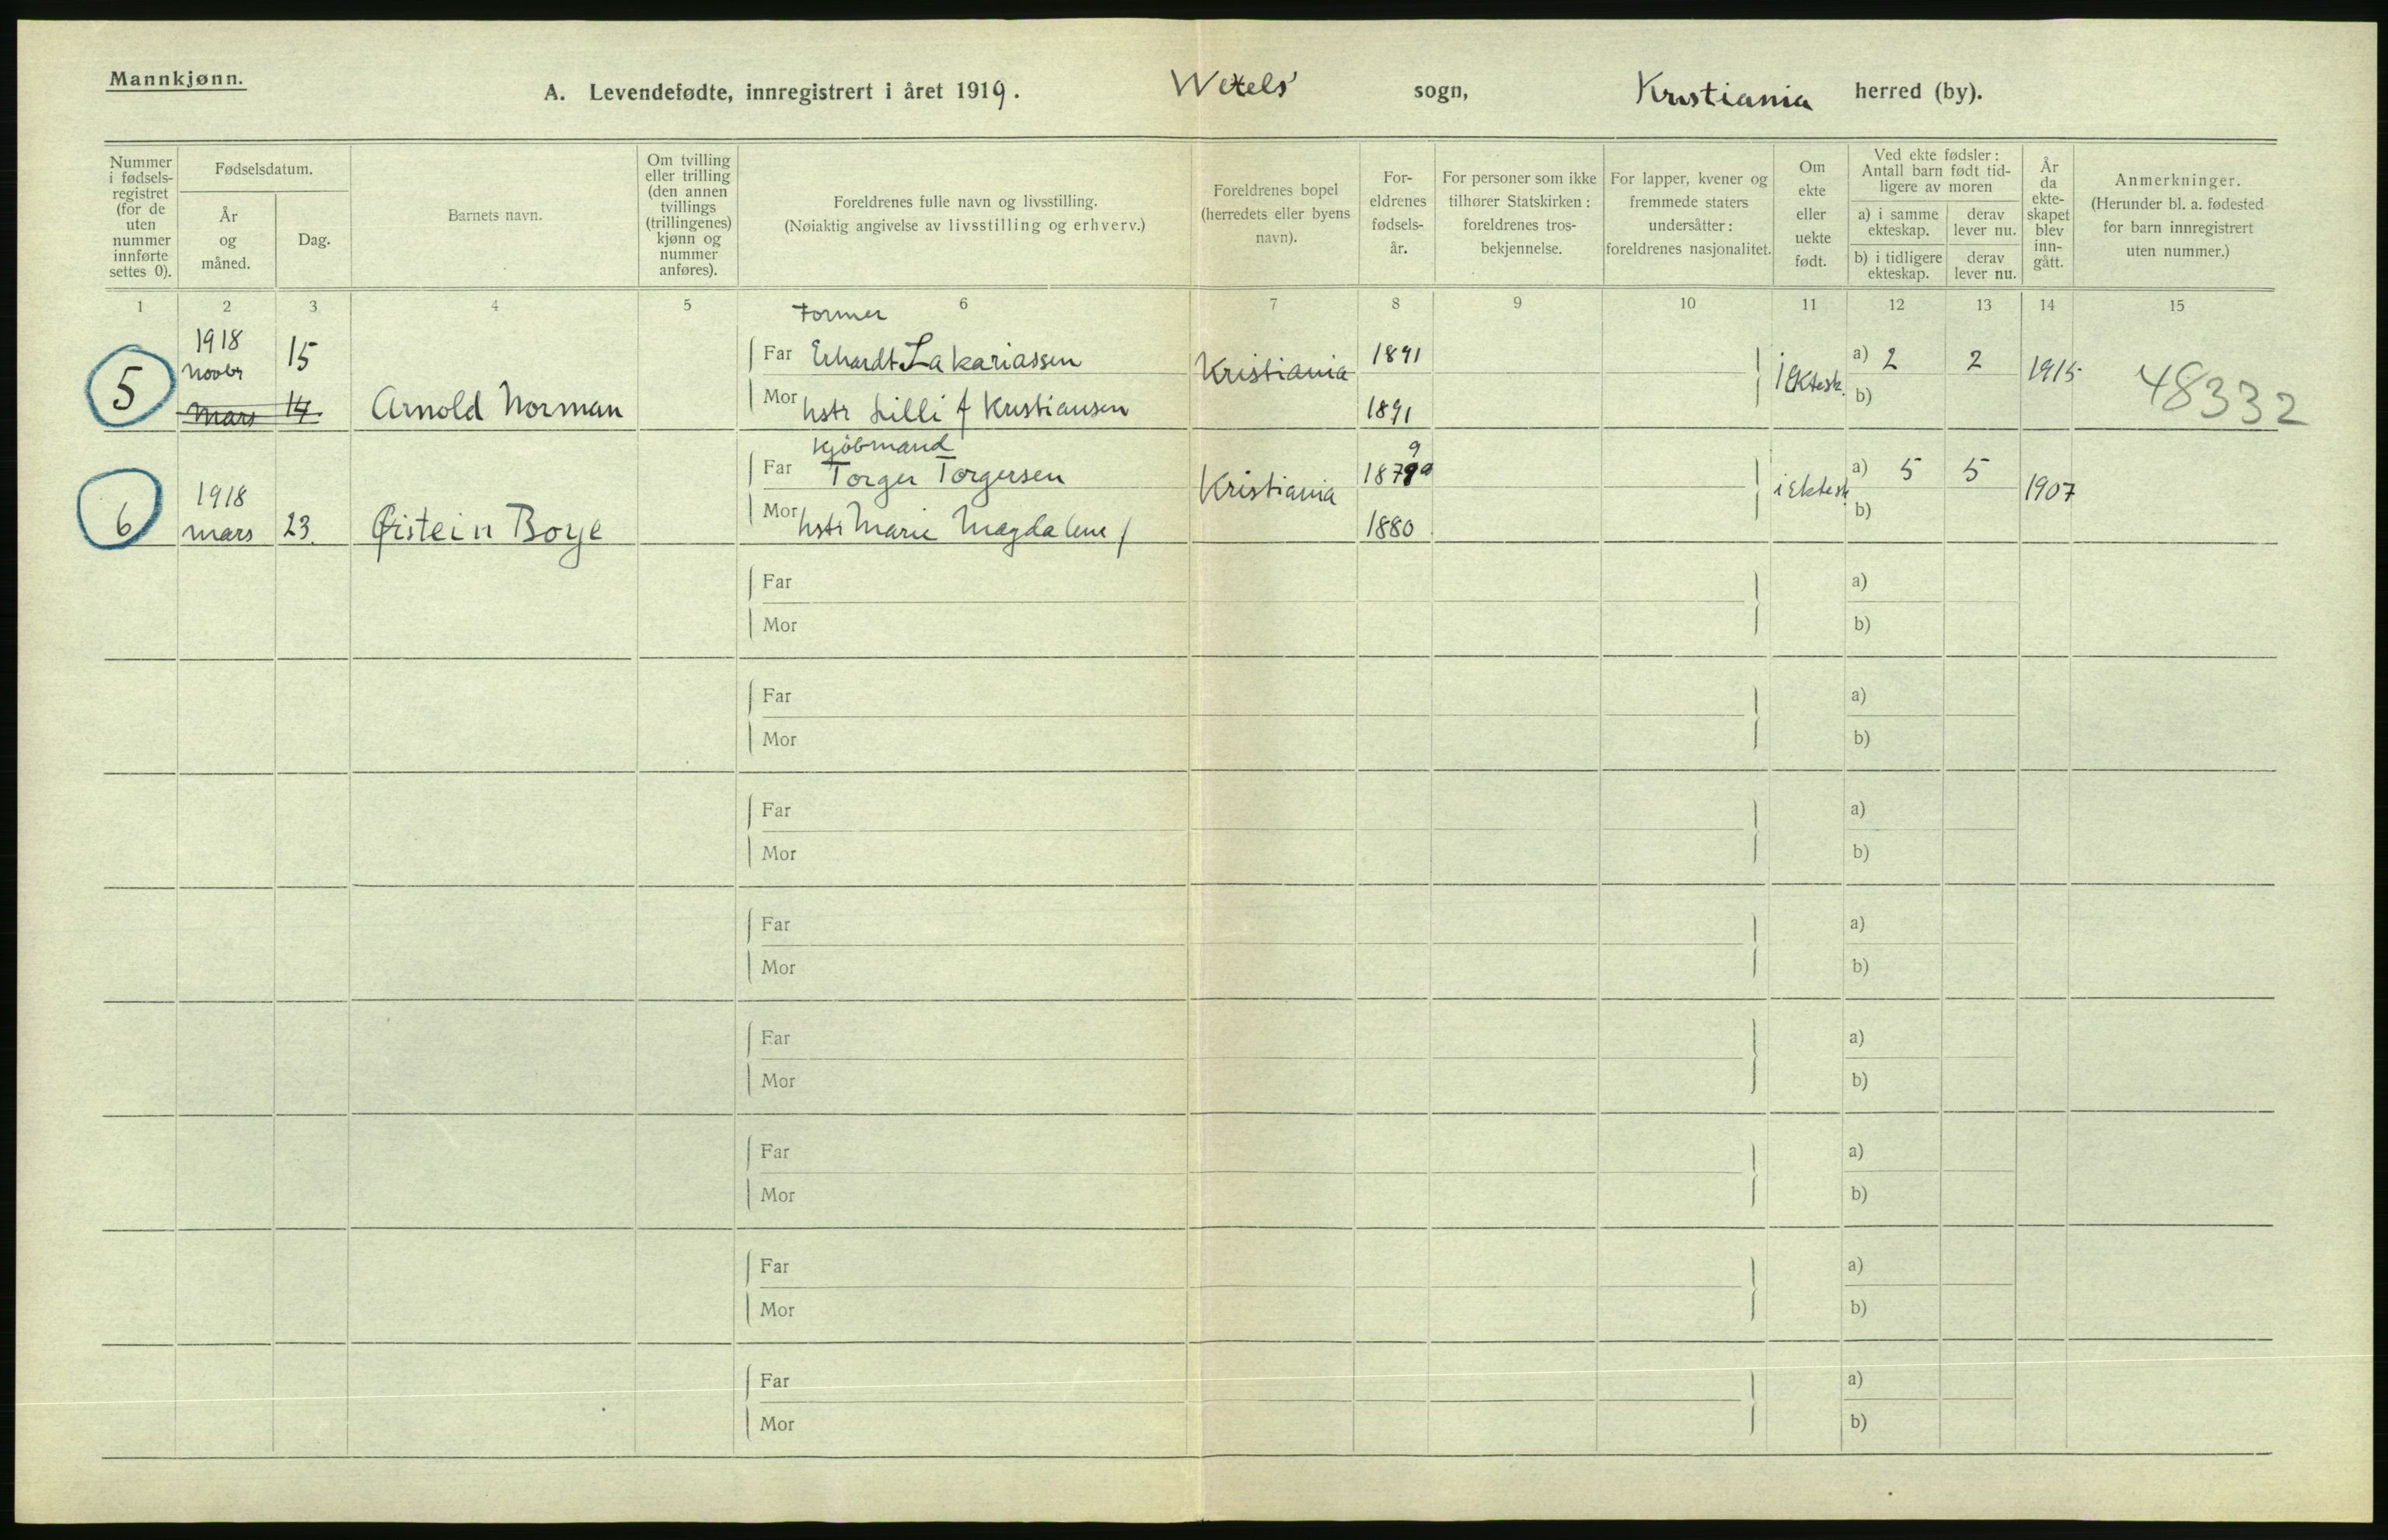 Mannkjønn.
A. Levendefødte, innregistrert i året 1919. Wexels' sogn, Kristiania herred (by).
Nummer i fødsels- registret (for de uten nummer innførte settes 0).
Fødselsdatum.
År og måned.
Dag.
Barnets navn.
Om tvilling eller trilling (den annen tvillings (trillingenes) kjønn og nummer anføres).
Foreldrenes fulle navn og livsstilling.
(Nøiaktig angivelse av livsstilling og erhverv.)
Foreldrenes bopel (herredets eller byens navn).
For- eldrenes fødsels- år.
For personer som ikke tilhører Statskirken: foreldrenes tros- bekjennelse.
For lapper, kvener og fremmede staters undersåtter: foreldrenes nasjonalitet.
Om ekte eller uekte født.
Ved ekte fødsler: Antall barn født tid- ligere av moren
a) i samme ekteskap. derav lever nu.
b) i tidligere ekteskap. derav lever nu.
År da ekte- skapet blev inn- gått.
Anmerkninger.
(Herunder bl. a. fødested for barn innregistrert uten nummer.)
1 2 3 4 5 6 7 8 9 10 11 12 13 14 15
Former
1918 Novbr 15
5 mars 14. Arnold Norman
Far Erhardt Zakariassen Kristiania 1891 i Ektesk. a) 2 2 1915 48332
Mor hstr Lilli f Kristiansen 1891 b)
Kjøbmand
Far Torger Torgersen Kristiania 1879 i Ektesk. a) 5 5 1907
6 1918 mars 23. Øistein Boye
Mor hstr Marie Magdalene f 1880 b)
Far a)
Mor b)
Far a)
Mor b)
Far a)
Mor b)
Far a)
Mor b)
Far a)
Mor b)
Far a)
Mor b)
Far a)
Mor b)
Far a)
Mor b)